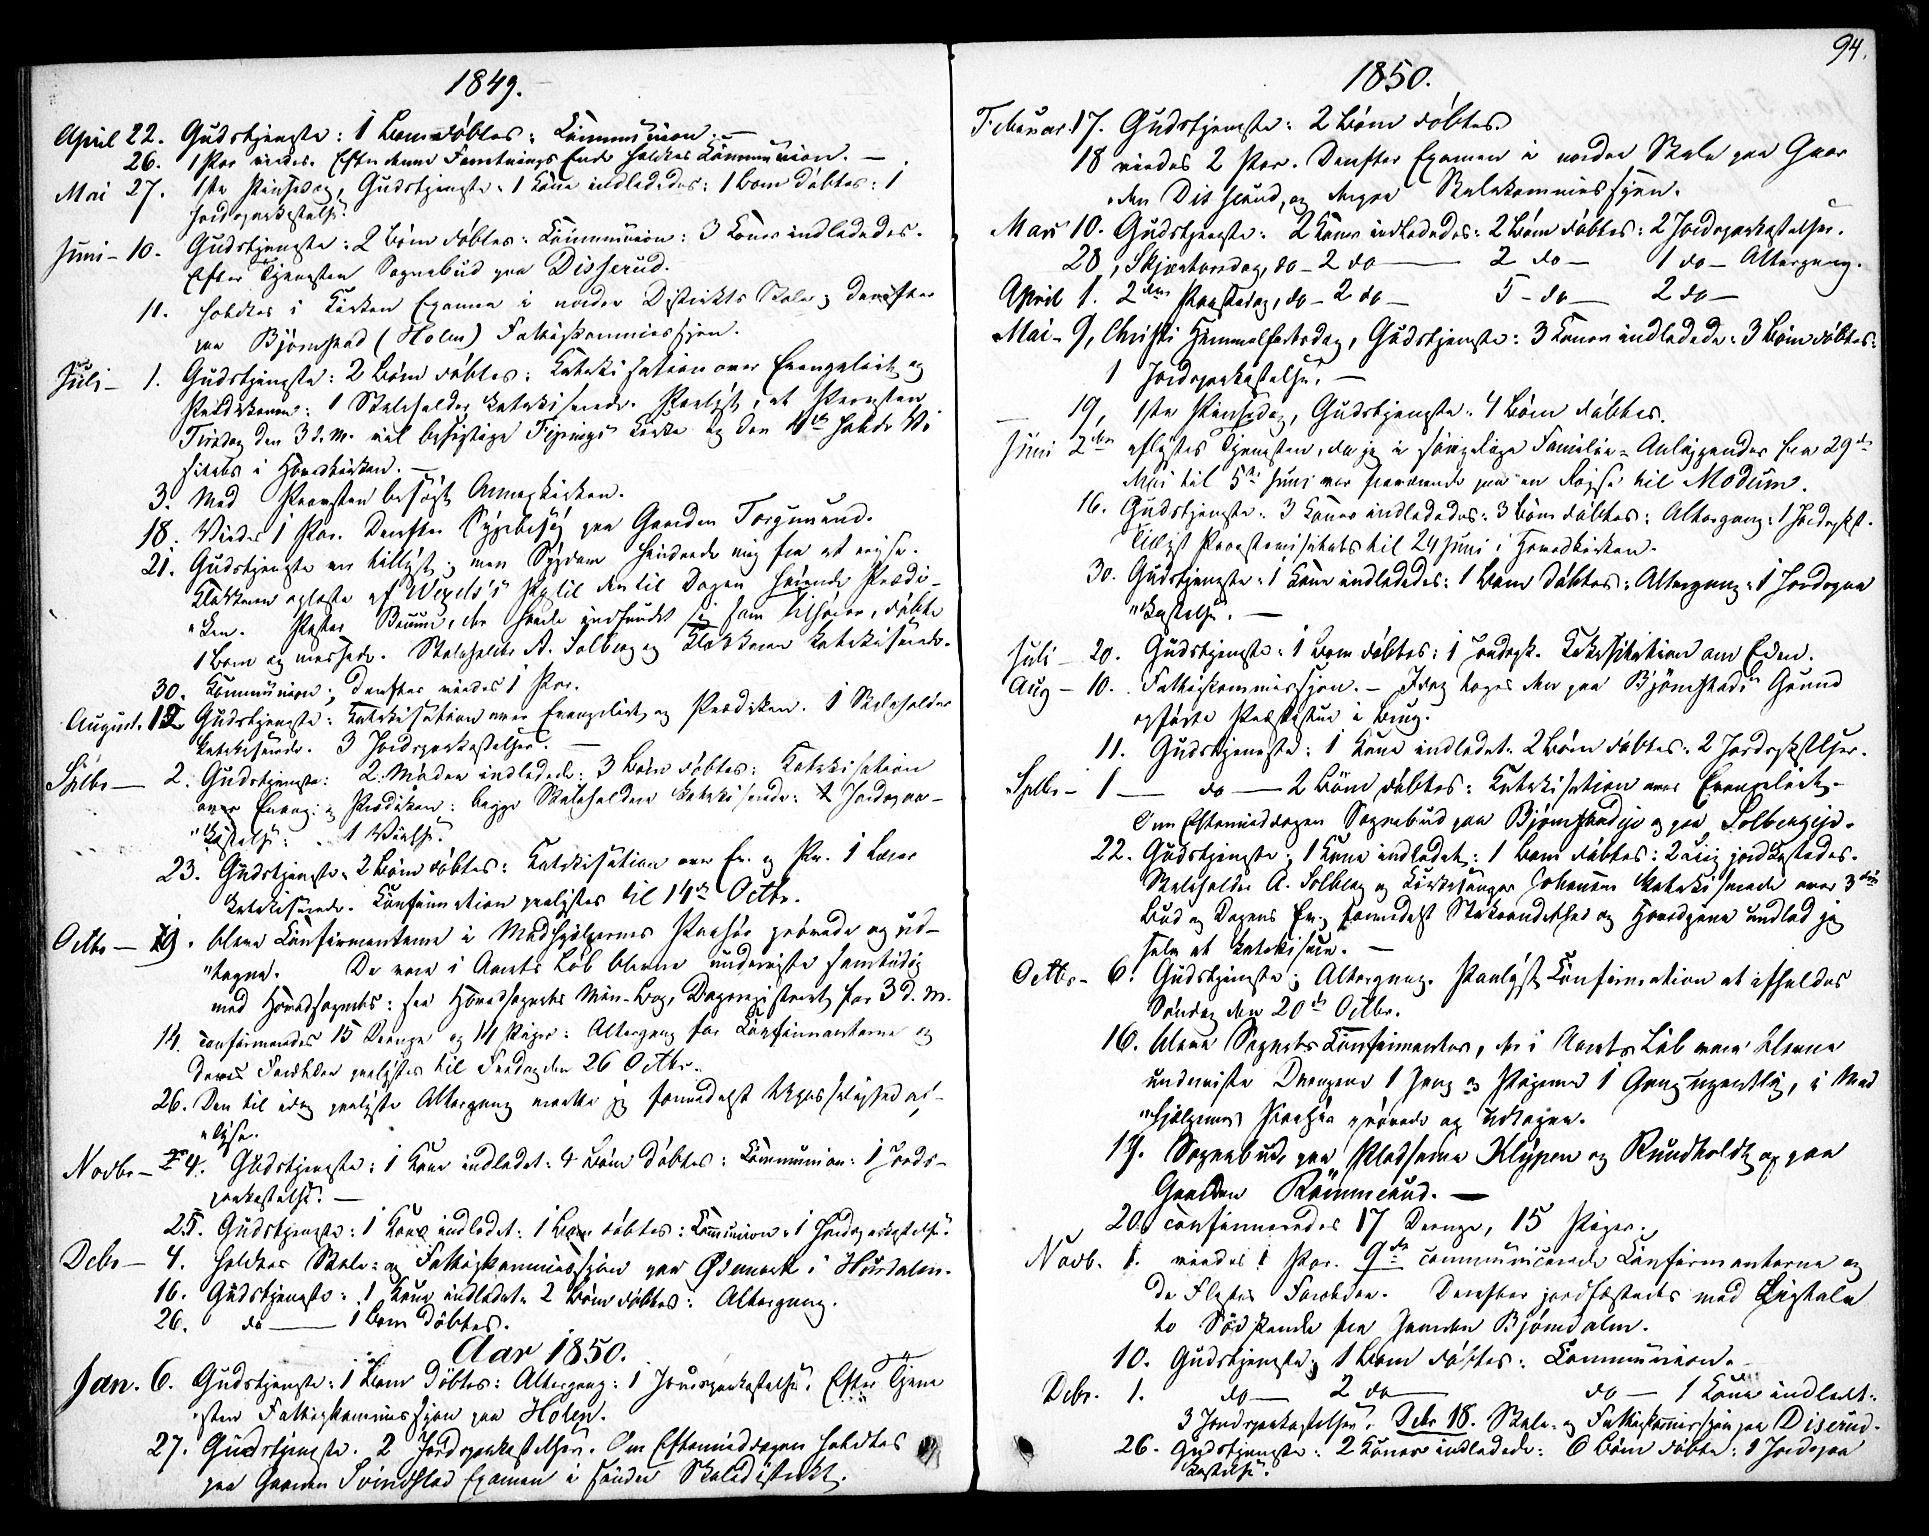 1849.
April 22. Gudstjeneste: 1 Barn døbtes: Communion. —
26. 1 Par viedes. Efter denne Forretnings Ende holdtes Communion. —
Mai 27. 1ste Pintsedag, Gudstjeneste: 1 Kone indlededes: 1 Barn døbtes: 1
Jordspaakastelse.
Juni — 10. Gudstjeneste: 2 Børn døbtes: Communion: 3 Koner indlededes.
Efter Tjenesten Sognebud paa Disserud.
11. holdtes i Kirken Examen i nordre Distrikts Skole; derefter
paa Bjørnstad (Holen) Fattigkommission.
Juli — 1. Gudstjeneste: 2 Børn døbtes: Katekisation over Evangeliet og
Prædikenen: 1 Skoleholder katekiserede. Paalyst, at Provsten
Tirsdag den 3 d. M. vil besigtige Kirke og den 4de holde Vi-
sitats i Hovedkirken. —
3. Med Provsten besøgt Annexkirken.
18. Viedes 1 Par. Derefter Sygebesøg paa Gaarden Torgunrud.
21. Gudstjeneste var tillyst; men Sygdom hindrede mig fra at reise.
Klokkeren oplæste af Wexels's Postil den til Dagen hørende Prædi-
"ken. Pastor Bruun, der havde indfundet sig som Tilhører, døbte
1 Barn og messede. Skoleholder A. Solberg og Klokkeren katekiserede.
30. Communion; derefter viedes 1 Par.
August. 12 Gudstjeneste: Katekisation over Evangeliet og Prædiken. 1 Skoleholder
katekiserede. 3 Jordspaakastelser. —
Septbr — 2. Gudstjeneste: 2 Mødre indledede: 3 Børn døbtes: Katekisation
over Evang: og Prædiken: begge Skoleholdere katekiserede: Jordspaa-
"kastelse: 1 Vielse.
23. Gudstjeneste: 2 Børn døbtes: Katekisation over Ev. og Pr. 1 Lærer
katekiserede. Confirmation paalystes til 14de Octbr.
Octbr — bleve Confirmanterne i Medhjelpernes Paahør prøvede og ud-
"tagne. De vare i Aarets Løb blevne underviste samtidig
med Hovedsognets: see Hovedsognets Min.-Bog, Dagregisteret for 3 d. M.
14. confirmeredes 15 Drenge og 14 Piger: Altergang for Confirmanterne og
deres Forældre paalystes til Fredag den 26 Octbr.
26. Den til idag paalyste Altergang maatte jeg formedelst Upasselighed af-
"lyse.
Novbr — 4. Gudstjeneste: 1 Kone indledet: 4 Børn døbtes: Communion: 1 Jords-
paakastelse. —
25. Gudstjeneste: 1 Kone indledet: 1 Barn døbtes: Communion: 1 Jordspaakastelse.
Debr — 4. holdtes Skole- og Fattigkommission paa Ødemark i Hursdalen.
16. Gudstjeneste: 1 Kone indledet: 2 Børn døbtes: Altergang.
26. do — 1 Barn døbtes.
Aar 1850.
Jan. 6. Gudstjeneste: 1 Barn døbtes: Altergang: 1 Jordspaakastelse. Efter Tjene
"sten Fattigkommission paa Holen.
27. Gudstjeneste. 2 Jordspaakastelser. Om Eftermiddagen holdtes
paa Gaarden Svindstad Examen i søndre Skoledistrikt.
94.
1850.
Februar. 17. Gudstjeneste: 2 Børn døbtes.
18 viedes 2 Par. Derefter Examen i nordre Skole paa Gaar
"den Disserud, og ligesaa Skolekommission.
Mars 10. Gudstjeneste: 2 Koner indlededes: 2 Børn døbtes: 2 Jordspaakastelser.
28, Skjærtorsdag, do — 2 do — 2 do — 1 do — Altergang.
April 1. 2den Paaskedag, do — 2 do — 5 — do — 2 do —
Mai — 9, Christi Himmelfartsdag, Gudstjeneste: 3 Koner indledede: 3 Børn døbtes:
1 Jordspaakastelse. —
— 19, 1ste Pintsedag, Gudstjeneste: 4 Børn døbtes.
Juni 2den aflystes Tjenesten, da jeg i sørgelige Familie-Anliggender fra 29de
Mai til 5te Juni var fraværende paa en Reise til Modum.
16. Gudstjeneste: 3 Koner indlededes: 3 Børn døbtes: Altergang: 1 Jordspkst.
Tillyst Provstevisitats til 24 Juni i Hovedkirken.
30. Gudstjeneste: 1 Kone indlededes: 1 Barn døbtes: Altergang: 1 Jordspaa
"kastelse. —
Juli — 20. Gudstjeneste: 1 Barn døbtes: 1 Jordspk. Katekisation om Eden.
Aug — 10. Fattigkommission. — Idag toges den paa Bjørnstads Grund
opførte Præstestue i Brug.
11. Gudstjeneste: 1 Kone indledet: 2 Børn døbtes: 2 Jordspkstlser.
Septbr — 1 — do — 2 Børn døbtes: Katekisation over Evangeliet. —
Om Eftermiddagen Sognebud paa Bjørnstadeje og paa Solbergeje.
22. Gudstjeneste; 1 Kone indledet: 1 Barn døbtes: 2 Liig jordkastedes.
Skoleholder A. Solberg og Kirkesanger Johansen katekiserede over 3die
Bud og Dagens Ev.; formedelst Stakaandethed og Hovedpine undlod jeg
selv at katekisere. —
Octbr — 6. Gudstjeneste; Altergang. Paalyst Confirmation at afholdes
Søndag den 20de Octbr.
16. bleve Sognets Confirmanter, der i Aarets Løb vare blevne
underviste Drengene 1 Gang og Pigerne 1 Gang ugentlig, i Med
"hjelpernes Paahør prøvede og udtagne.
19. Sognebud, paa Pladserne Klypen og Rundholdt og paa
Gaarden Römmerud. —
20. confirmeredes 17 Drenge, 15 Piger.
Novb. 1. viedes 1 Par. 9de communicerede Confirmanterne og
de Flestes Forældre. Derefter jordfæstedes med Ligtale
to Sødskende fra Gaarden Bjørndalen.
10. Gudstjeneste; 1 Barn døbtes: Communion. —
Debr. 1. do — 2 do — do — 1 Kone indledt:
3 Jordspaakastelser. Debr 18. Skole- og Fattigkommission paa Diserud.
26. Gudstjeneste: 2 Koner indledede: 6 Børn døbte: 1 Jordspaa
kastelse.